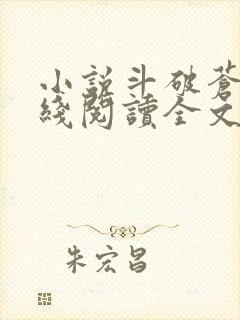 小說斗破蒼
綫閱讀全文
朱宏昌